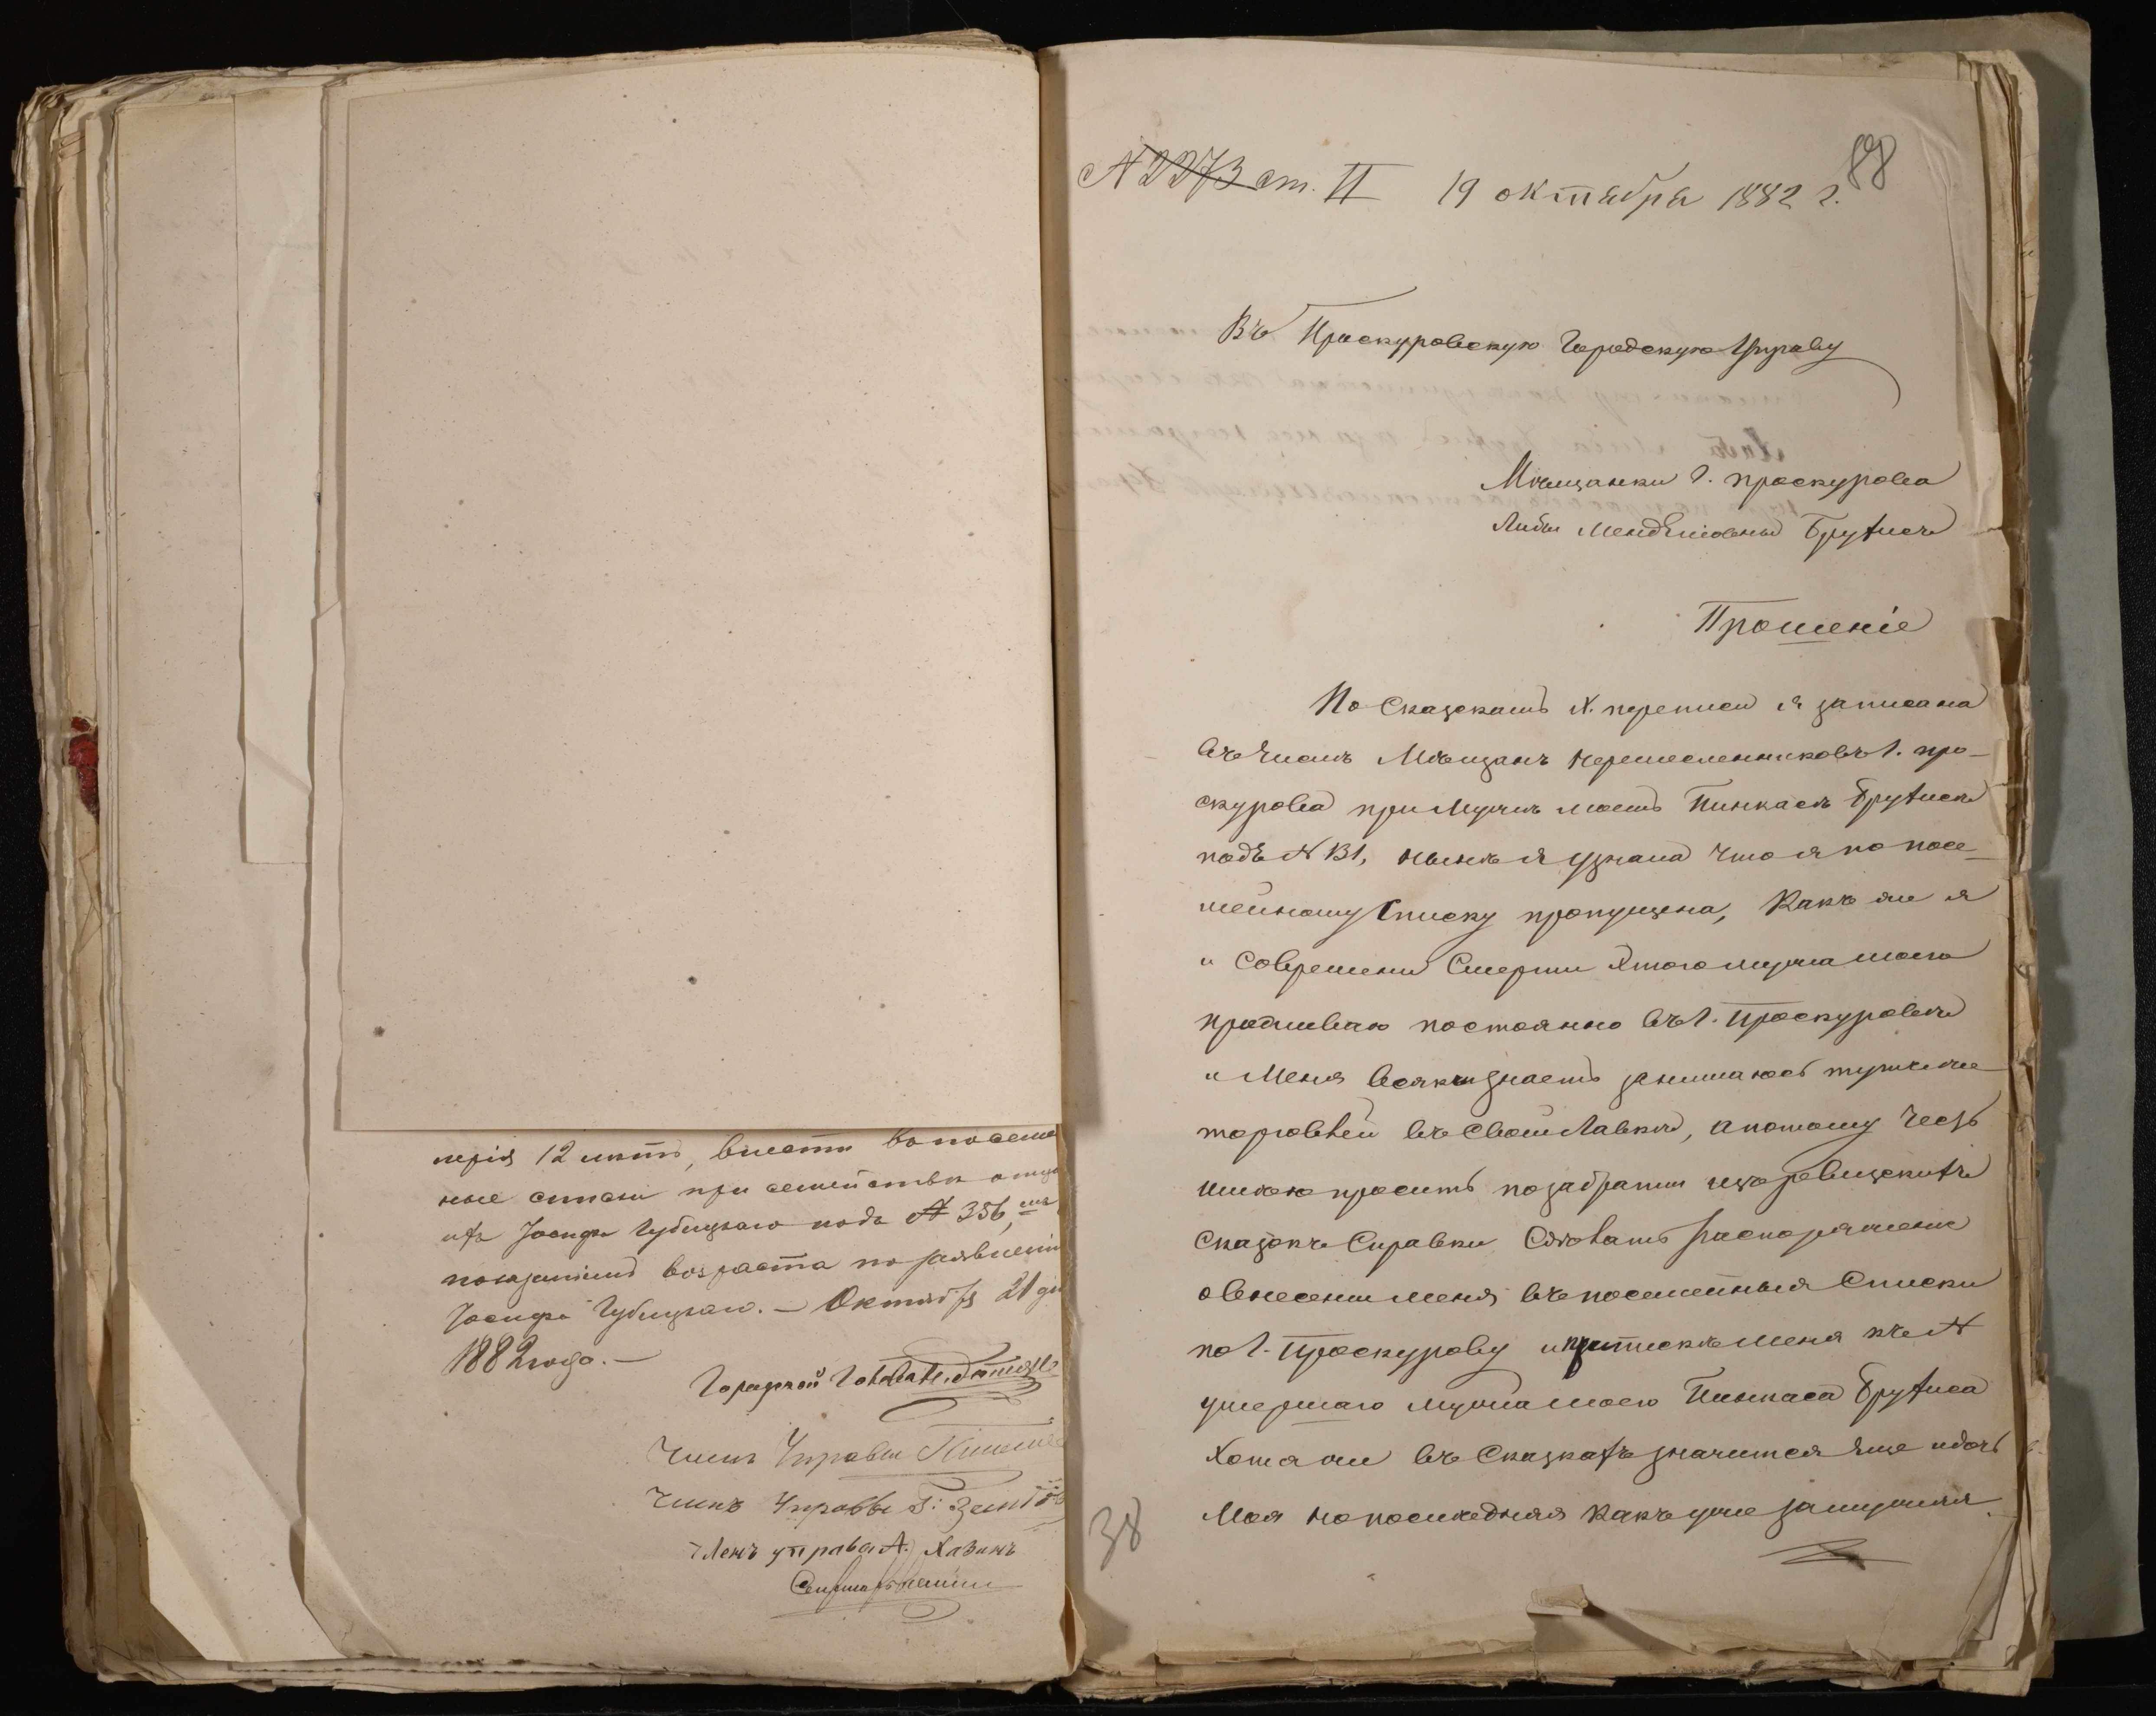 лерія 12 лѣтъ, внести во посемей
ные списки при семействѣ отца
ихъ Іосифа Губицкаго подъ № 356, съ
показаніемъ возраста по заявленію
Іосифа Губицкаго. — Октября 21 дня
1882 года. —
Городской Голова
Членъ Управы
Членъ Управы
Членъ управы А. Хазинъ
Секретарь
№ 2273 ст. II 19 октября 1882 г.
88
Въ Проскуровскую Городскую Управу
Мѣщанки г. Проскурова
Либы Менделіовны Брухисъ
Прошеніе
По Сказкамъ X. переписи я записана
въ числѣ Мѣщанъ Неремесленниковъ г. Про-
скурова при Мужѣ моемъ Пинкасѣ Брухисѣ
подъ № 131, нынѣ я узнала что я по посе-
мейному Списку пропущена, Какъ же я
и Современи Смерти Этого мужа моего
проживаю постоянно въ г. Проскуровѣ
и Меня всякій знаетъ занимаюсь тутъ же
торговлей въ Своей Лавкѣ, а потому честь
имѣю просить по забратіи изъ ревизскихъ
Сказокъ Справки Сдѣлать распоряженіе
о внесеніи меня въ посемейныя Списки
по г. Проскурову и припискѣ Меня къ №
умершаго мужа моего Пинкаса Брухиса
Хотя же въ Сказкахъ значится Еще и дочь
Моя но послѣдняя какъ уже замужняя
38